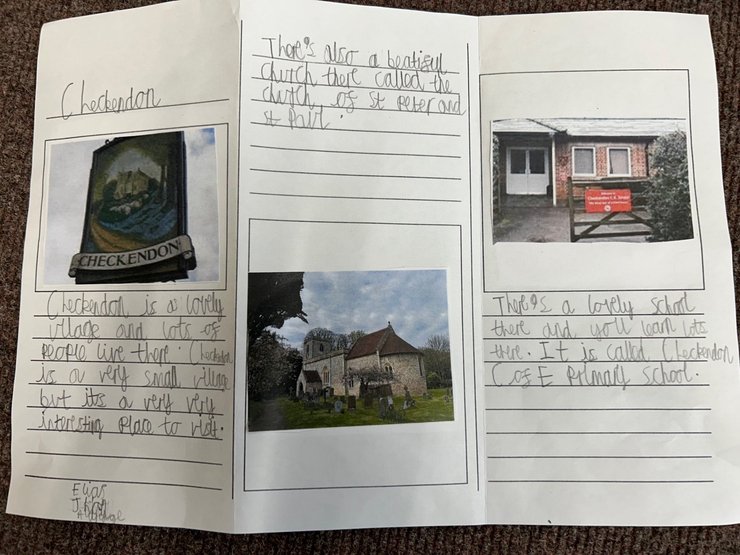 Checkendon
CHECKENDON
Checkendon is a lovely
village and lots of
people live there. Checkendon
is a very small village
but its a very very
interesting place to visit.
Elias
There's also a beatiful
church there called the
church of St Peter and
st Paul.
Checkendon C.E. School
There's a lovely school
there and you'll learn lots
there. It is called Checkendon
C of E Primary School.